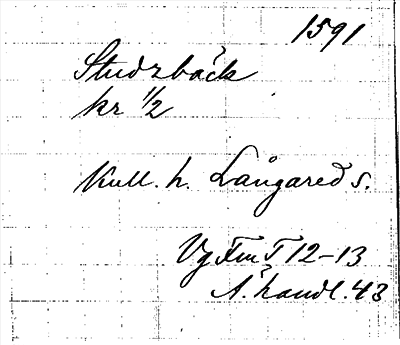 1591
Studzbäck
kr 1/2
Kull. h. Långared s.
Vg FmT 12-13
Å. handl. 43